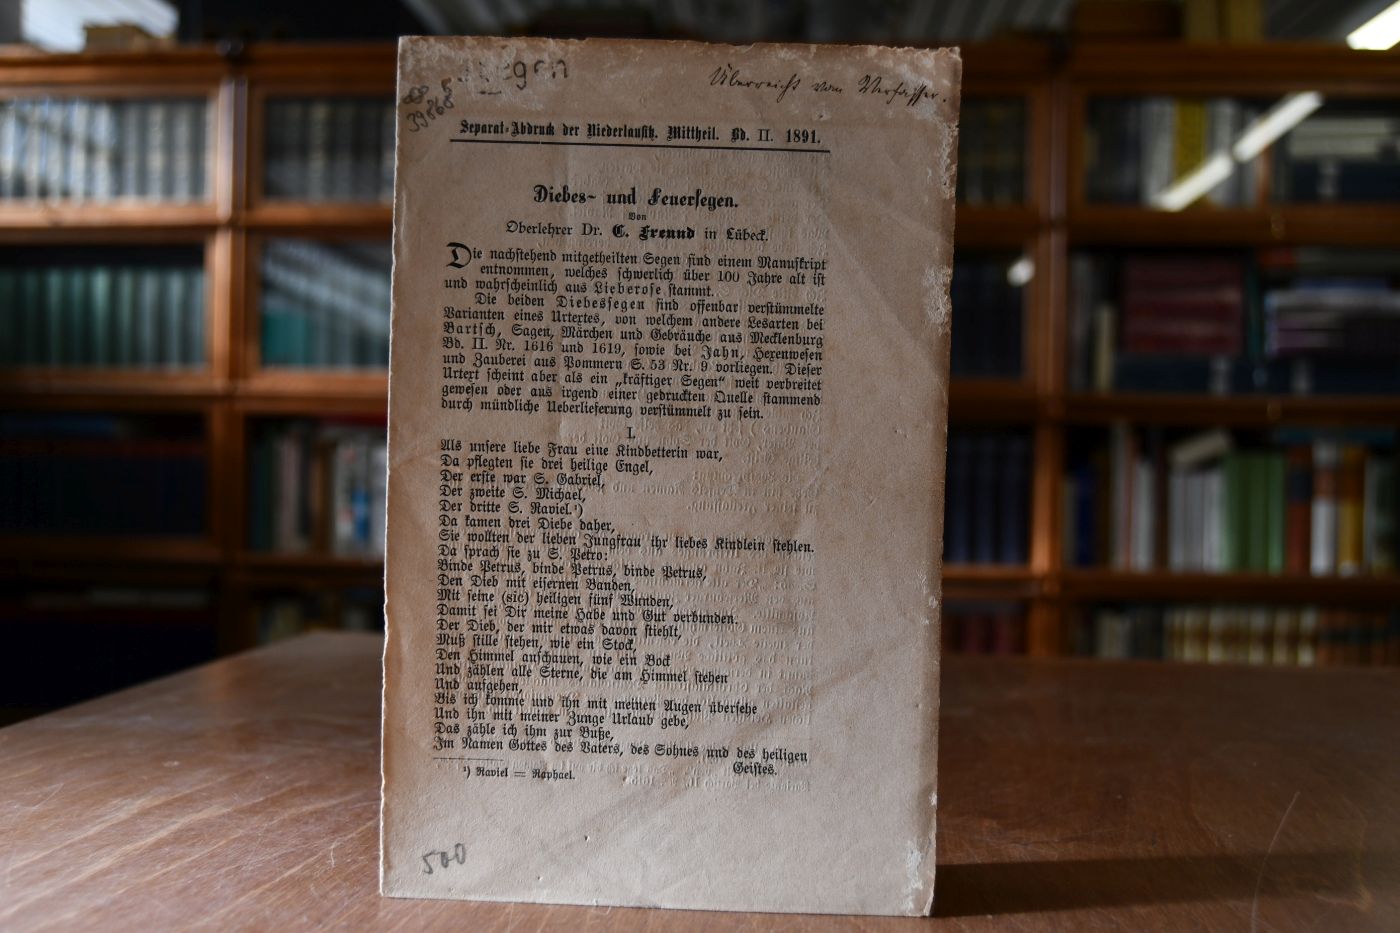 Segen
Überreicht vom Verfasser.
39868
Separat-Abdruck der Niederlausitz. Mittheil. Bd. II. 1891.
Diebes- und Feuersegen.
Von
Oberlehrer Dr. C. Freund in Lübeck.
Die nachstehend mitgetheilten Segen sind einem Manuskript
entnommen, welches schwerlich über 100 Jahre alt ist
und wahrscheinlich aus Lieberose stammt.
Die beiden Diebessegen sind offenbar verstümmelte
Varianten eines Urtextes, von welchem andere Lesarten bei
Bartsch, Sagen, Märchen und Gebräuche aus Mecklenburg
Bd. II. Nr. 1616 und 1619, sowie bei Jahn, Hexenwesen
und Zauberei aus Pommern S. 53 Nr. 9 vorliegen. Dieser
Urtext scheint aber als ein „kräftiger Segen“ weit verbreitet
gewesen oder aus irgend einer gedruckten Quelle stammend
durch mündliche Ueberlieferung verstümmelt zu sein.
I.
Als unsere liebe Frau eine Kindbetterin war,
Da pflegten sie drei heilige Engel,
Der erste war S. Gabriel,
Der zweite S. Michael,
Der dritte S. Raviel.¹)
Da kamen drei Diebe daher,
Sie wollten der lieben Jungfrau ihr liebes Kindlein stehlen.
Da sprach sie zu S. Petro:
Binde Petrus, binde Petrus, binde Petrus,
Den Dieb mit eisernen Banden,
Mit seine (sic) heiligen fünf Wunden,
Damit sei Dir meine Habe und Gut verbunden.
Der Dieb, der mir etwas davon stiehlt,
Muß stille stehen, wie ein Stock,
Den Himmel anschauen, wie ein Bock
Und zählen alle Sterne, die am Himmel stehen
Und aufgehen,
Bis ich komme und ihn mit meinen Augen übersehe
Und ihn mit meiner Zunge Urlaub gebe,
Das zähle ich ihm zur Buße,
Im Namen Gottes des Vaters, des Sohnes und des heiligen
Geistes.
¹) Raviel = Raphael.
500